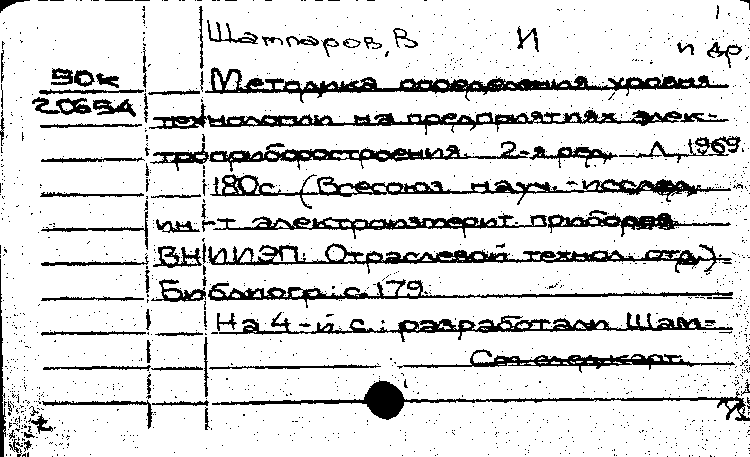 1
Шампаров, В И и др.
50к Методика определения уровня
20654 технологии на предприятиях элек-
троприборостроения. 2-я ред. Л., 1969.
180с. (Всесоюз. науч.-исслед.
ин-т электроизмерит. приборов
ВНИИЭП. Отраслевой технол. отд.)
Библиогр.: с. 179
На 4-й с.: разработали Шам-
См. след. карт.